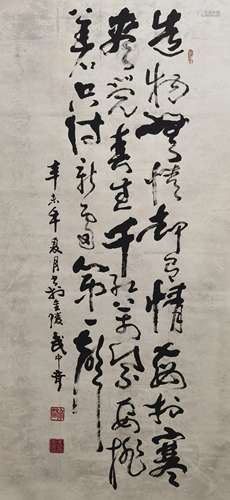 造物無情却有情每於寒
盡覺春生千紅萬紫安排
著只待新雷第一聲
辛未年夏月書於金陵武中奇